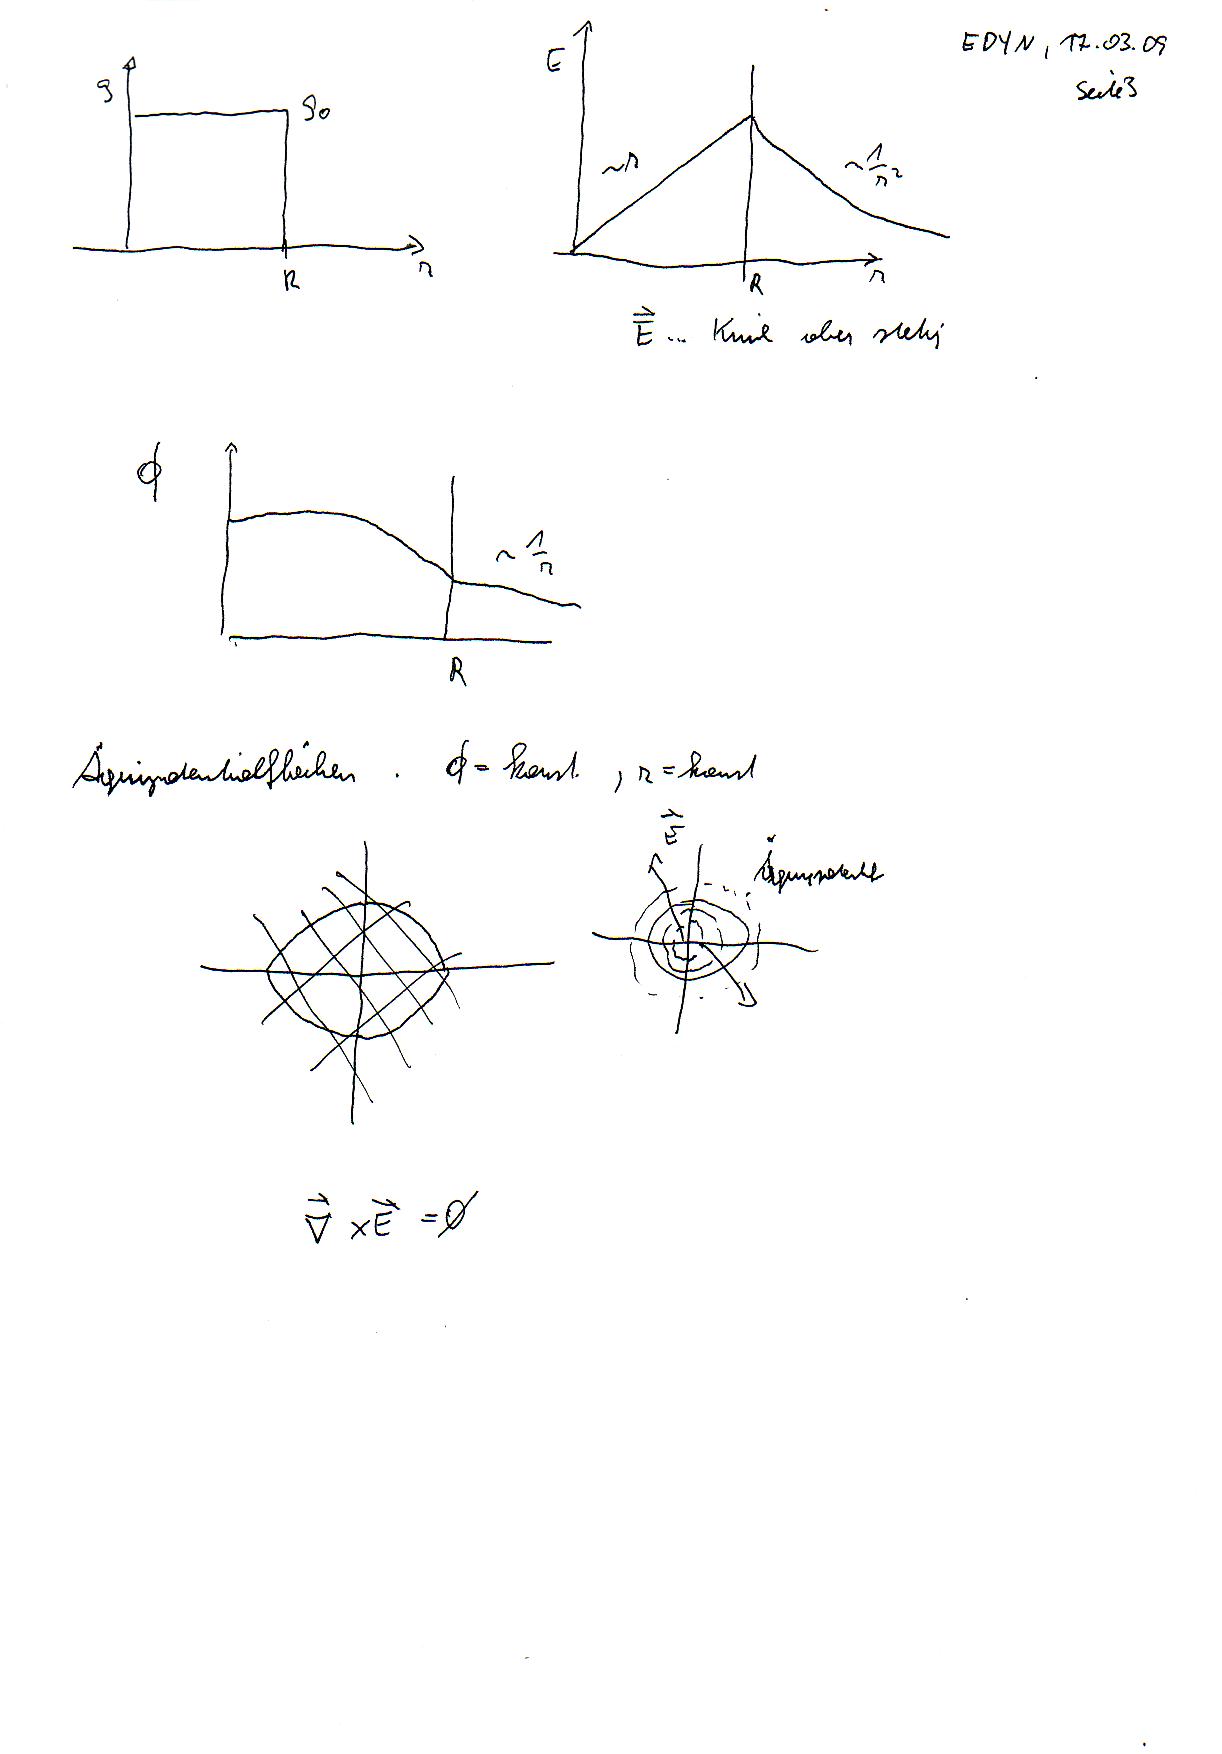 EDYN, 17.03.09
Seite 3
ρ
ρ₀
R
r
E
~r
~1/r²
R
r
E⃗ ... Knick aber stetig
ϕ
~ 1/r
R
Äquipotentialflächen. ϕ = konst. , r = konst
E⃗
Äquipotentialfl
∇⃗ × E⃗ = 0